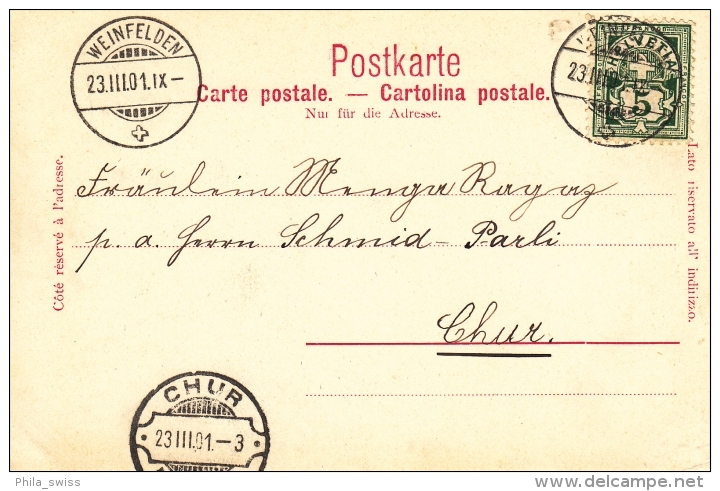 WEINFELDEN
23.III.01.IX–
Postkarte
Carte postale. — Cartolina postale.
Nur für die Adresse.
HELVETIA
5
Côté réservé à l'adresse.
Lato riservato all' indirizzo.
Fräulein Menga Ragaz
p. a. Herrn Schmid-Parli
Chur.
CHUR
23III.01.–3
Phila_swiss
delcampe.net